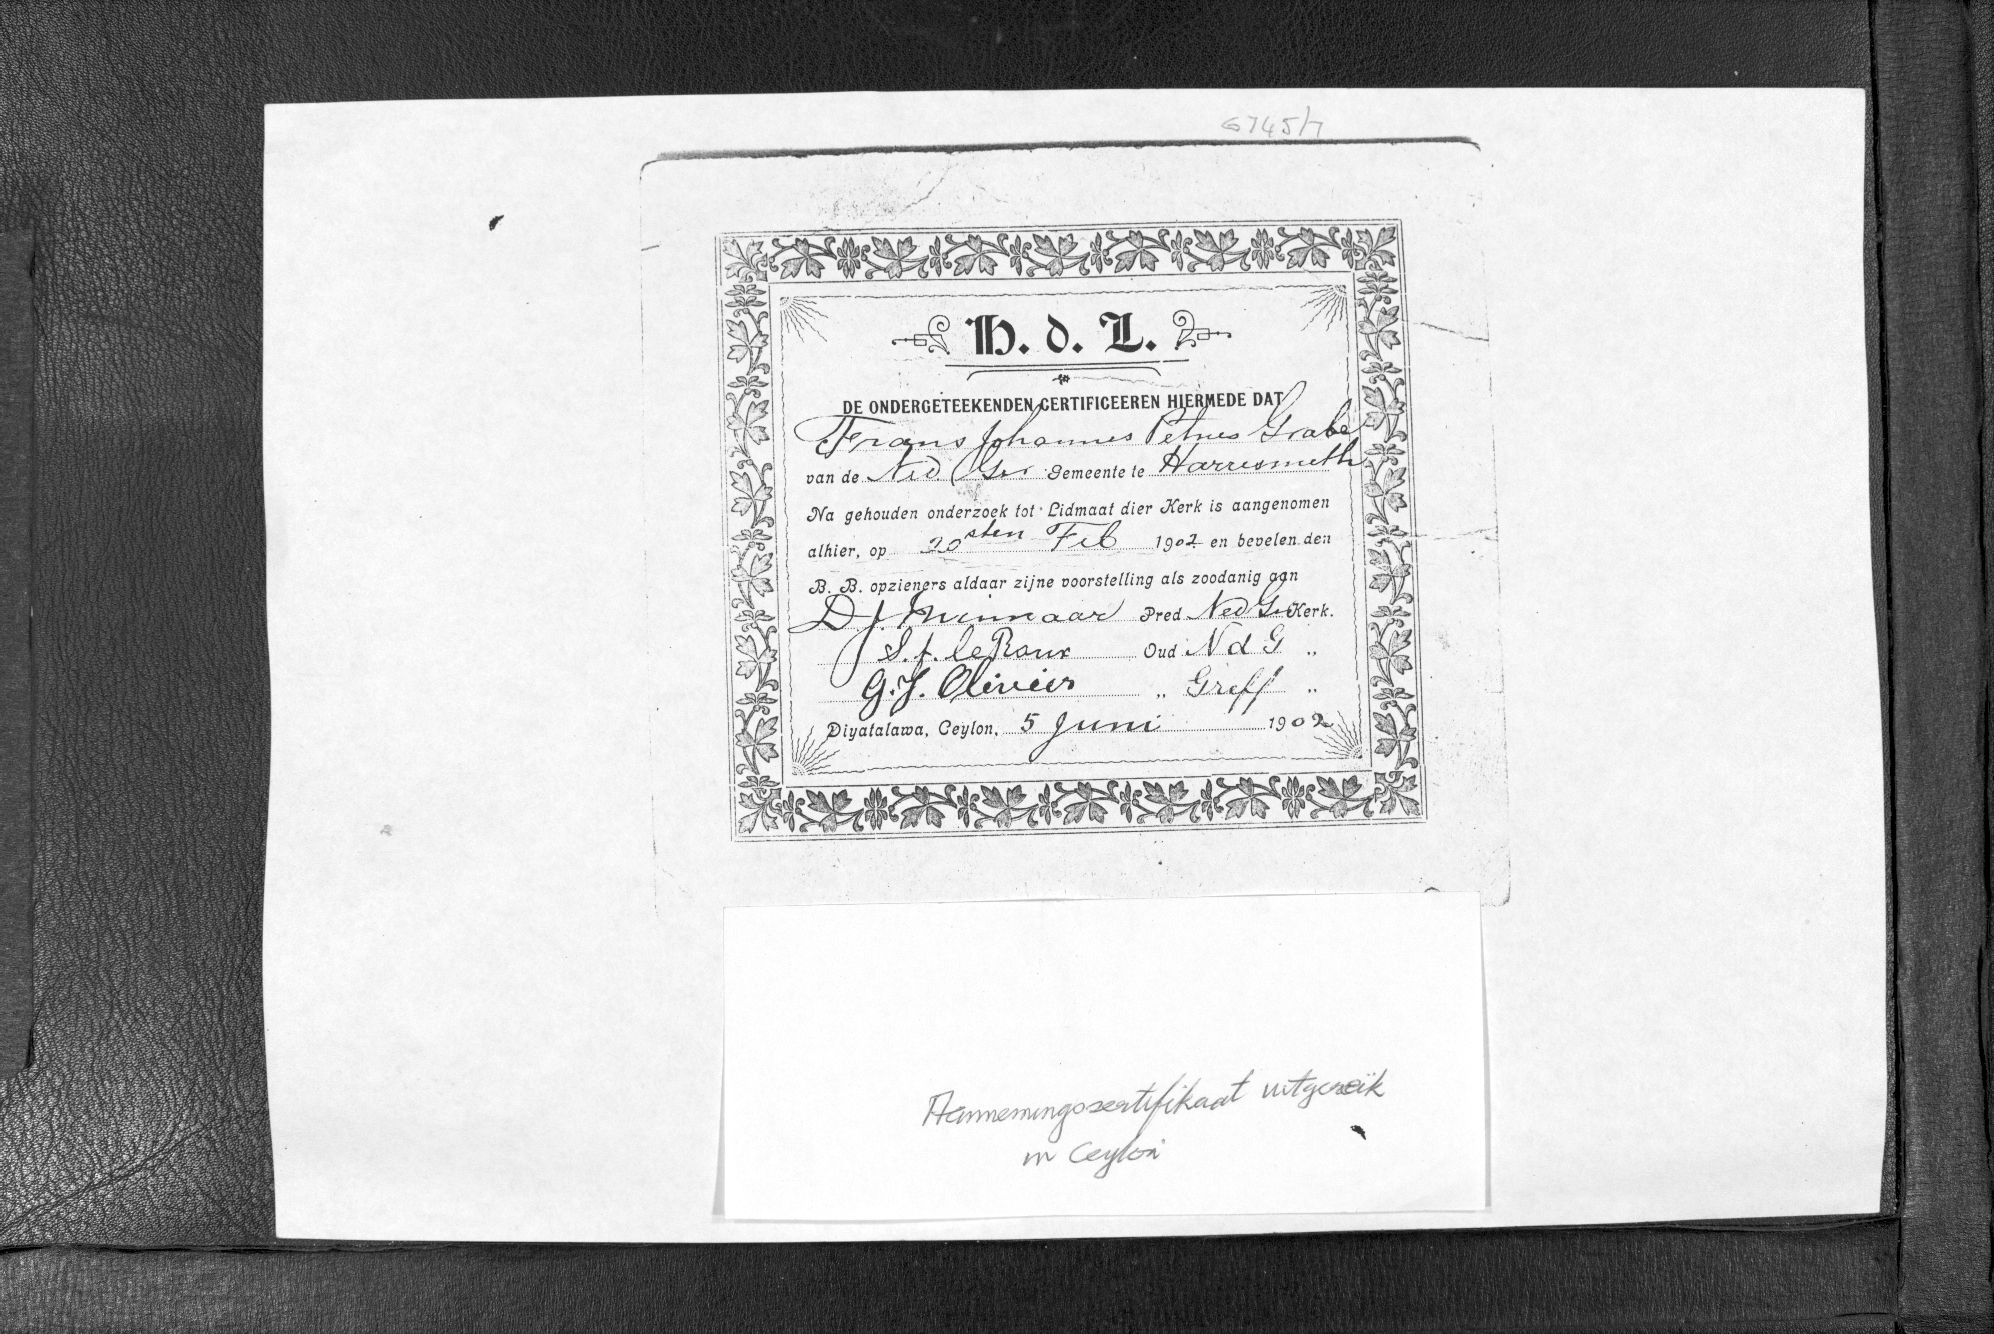 6745/7
H. d. L.
DE ONDERGETEEKENDEN CERTIFICEEREN HIERMEDE DAT
Frans Johannes Petrus Grabe
van de Ned Ger Gemeente te Harrismith
Na gehouden onderzoek tot Lidmaat dier Kerk is aangenomen
alhier, op 20sten Feb 1902 en bevelen den
B. B. opzieners aldaar zijne voorstelling als zoodanig aan
D J. Minnaar Pred Ned Ger Kerk.
S. J. le Roux Oud N d G „
G. J. Olivier „ Greff „
Diyatalawa, Ceylon, 5 Juni 1902
Aannemingssertifikaat uitgereik
in Ceylon